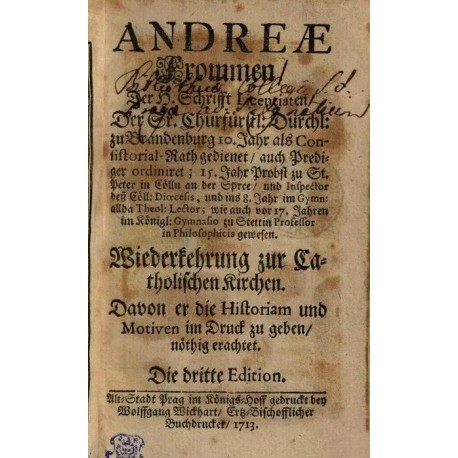 ANDREÆ
Frommen/
Der H. Schrifft Licentiaten/
Der Sr. Churfürstl: Durchl:
zu Brandenburg 10. Jahr als Con-
sistorial-Rath gedienet/ auch Predi-
ger ordiniret; 15. Jahr Probst zu St.
Peter in Cölln an der Spree/ und Inspector
deß Cöll: Diœcesis, und ins 8. Jahr im Gymn:
allda Theol: Lector; wie auch vor 17. Jahren
im Königl: Gymnasio zu Stettin Professor
in Philosophicis gewesen.
Wiederkehrung zur Ca-
tholischen Kirchen.
Davon er die Historiam und
Motiven im Druck zu geben/
nöthig erachtet.
Die dritte Edition.
Alt-Stadt Prag im Königs-Hoff gedruckt bey
Wolffgang Wickhart/ Ertz-Bischofflicher
Buchdrucker/ 1713.